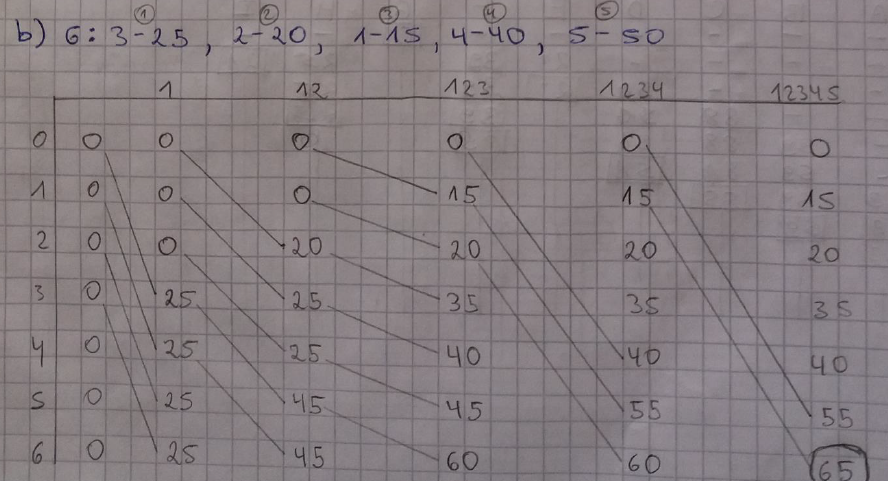 ① ② ③ ④ ⑤
b) 6: 3-25, 2-20, 1-15, 4-40, 5-50
1 12 123 1234 12345
0 0 0 0 0 0 0
1 0 0 0 15 15 15
2 0 0 20 20 20 20
3 0 25 25 35 35 35
4 0 25 25 40 40 40
5 0 25 45 45 55 55
6 0 25 45 60 60 65